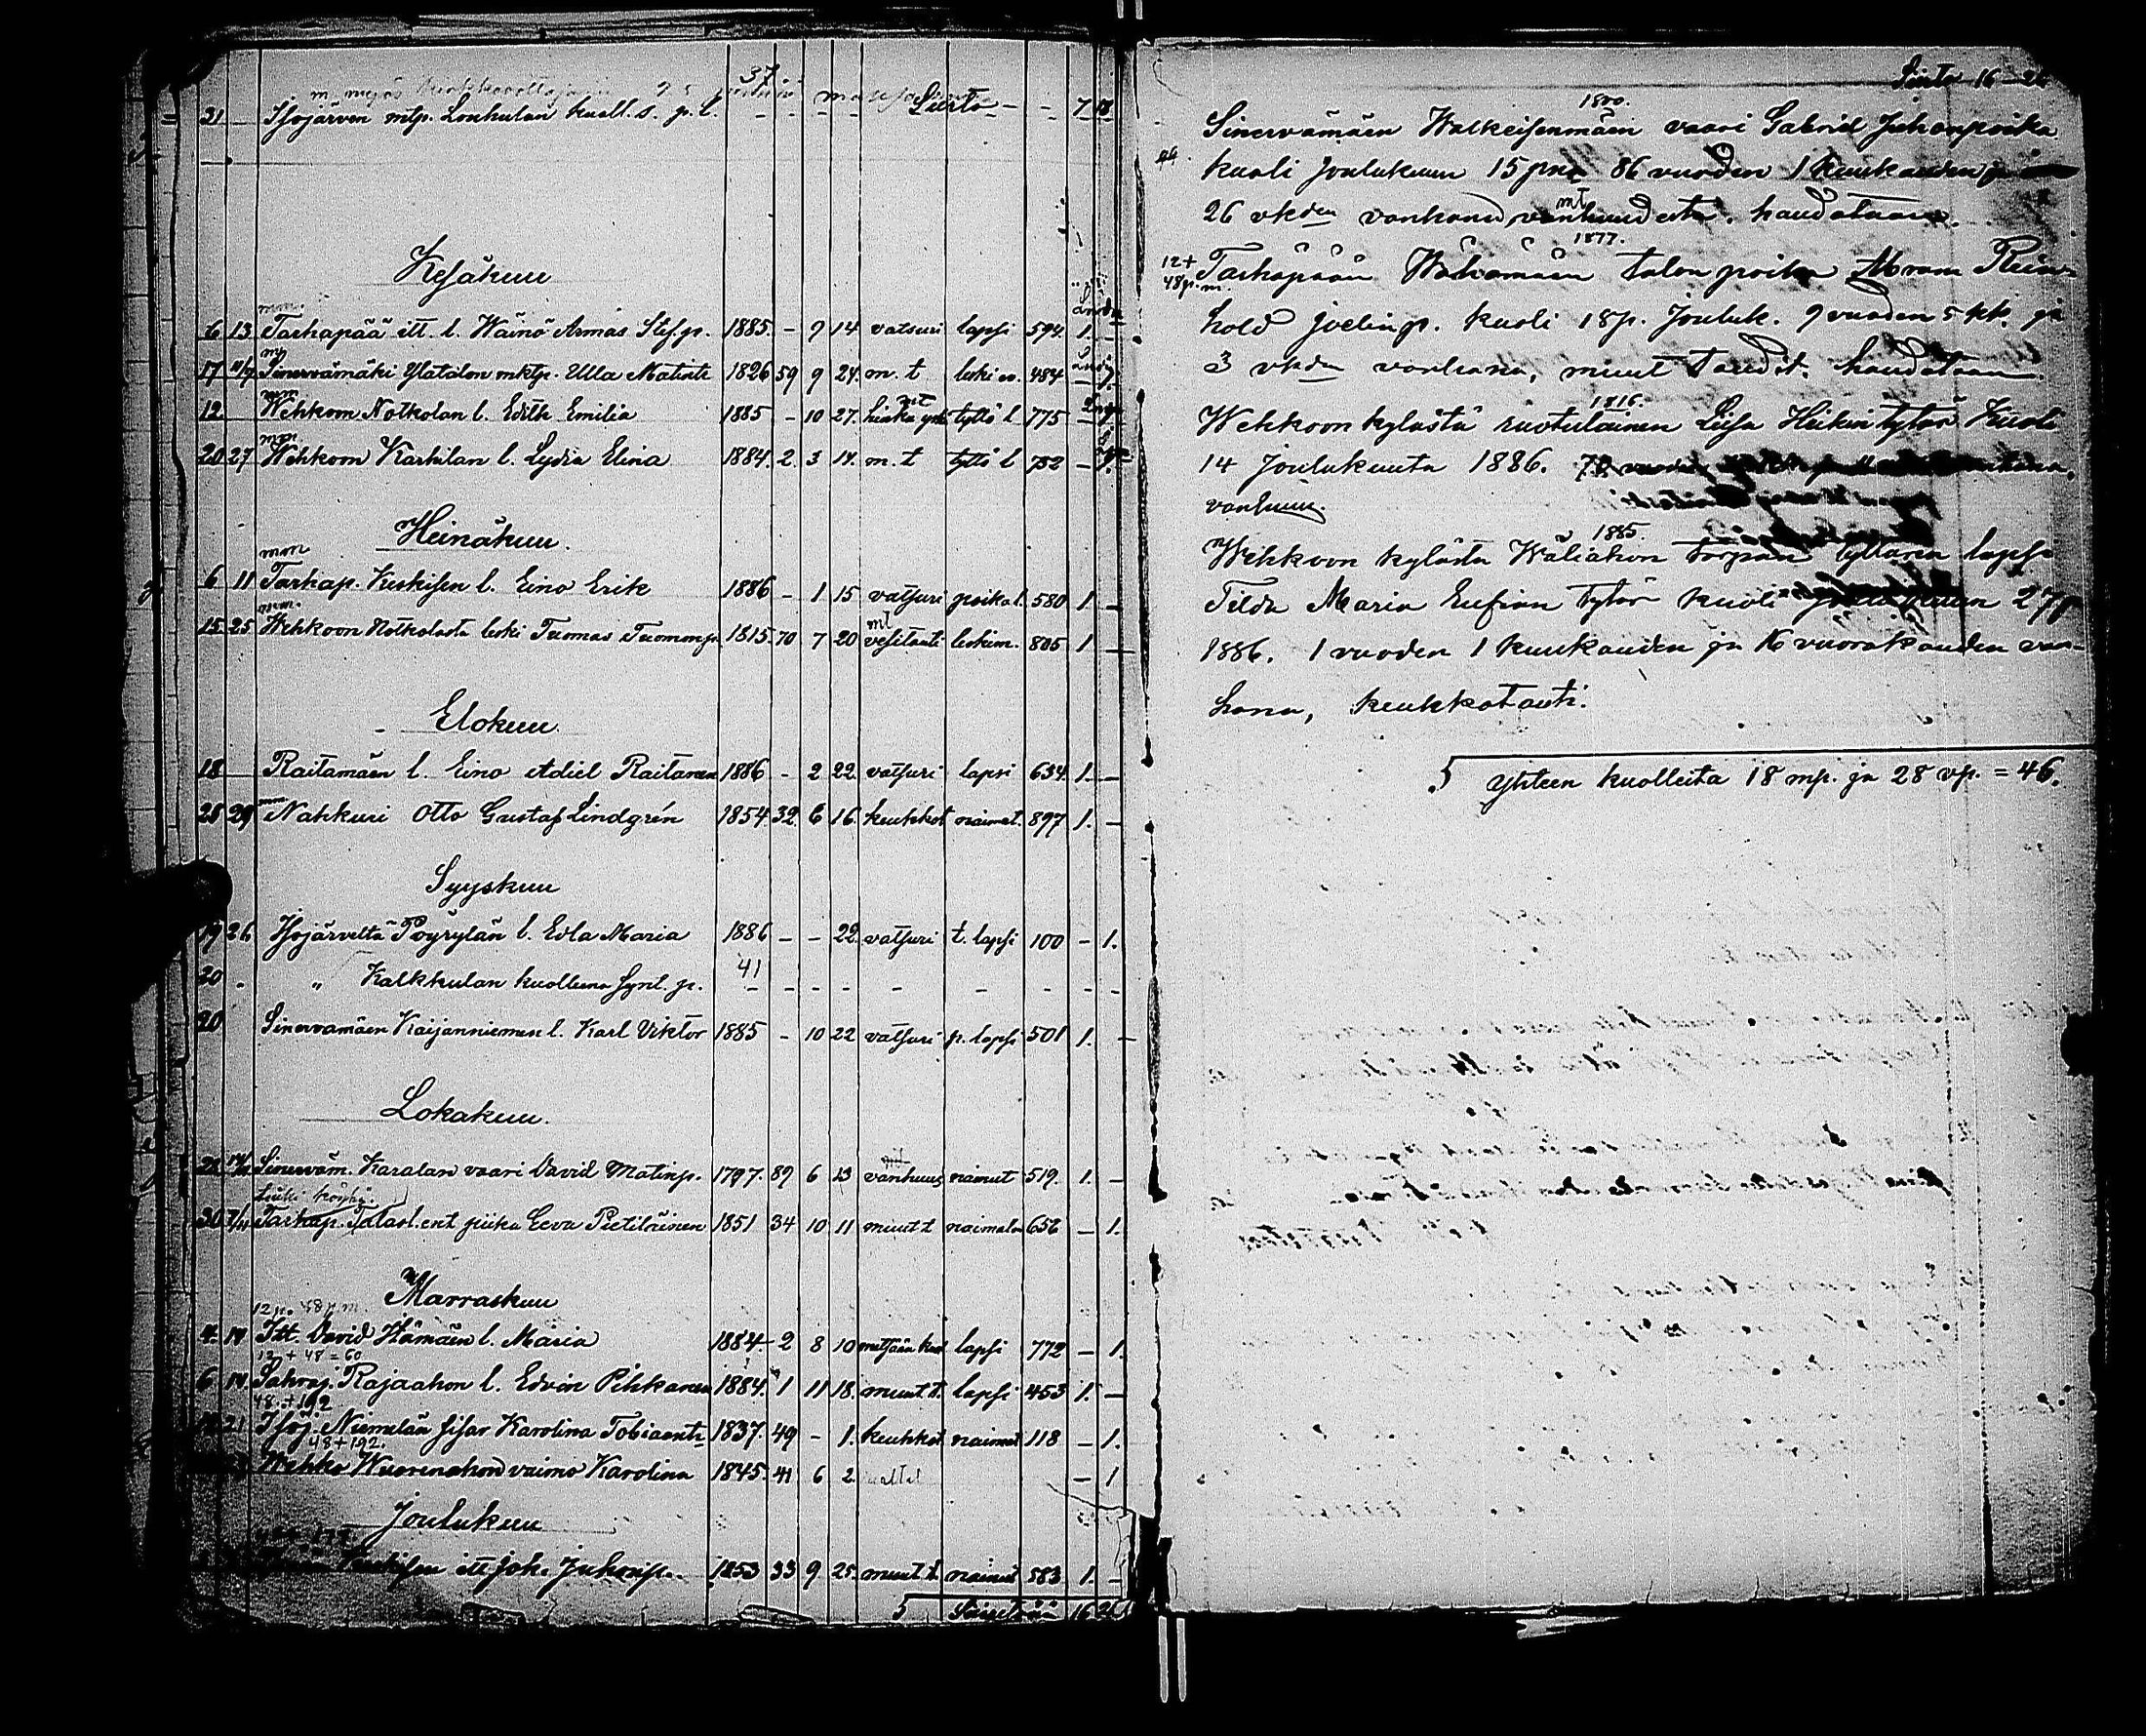 37
21 Isojärven mtp. Louhulan kuoll. s. p. l. - - - - Siirto - - 7 18
Kesäkuu
mm.
6 13 Tarhapää itt. l. Wäinö Armas Stef. p. 1885. - 9 14 vatsuri lapsi 594 1. -
17 11/7 Sinervämäki Ylätalon mktp. Ulla Matintr 1826 59 9 24. m. t leski v. 484 - 1.
mm
12 Wehkoon Notkolan l. Edith Emilia 1885 - 10 27. tyttö l. 775 - 1.
mm
20 27 Wehkoon Karhilan l. Lydia Elina 1884. 2. 3 14. m. t tyttö l 752 - 1.
Heinäkuu.
mm
6 11 Tarhap. Keskisen l. Eino Erik 1886 - 1 15 vatsuri poika l. 580 1. -
mm. mt
15 25 Wehkoon Notkolasta leski Tuomas Tuomonp. 1815. 70 7 20 vesitauti leskim. 805 1 -
Elokuu.
18 Raitamäen l. Eino Adiel Raitanen 1886 - 2 22. vatsuri lapsi 634 1. -
mm
28 29 Nahkuri Otto Gustaf Lindgrén 1854. 32. 6 16. keuhkot naimat. 897 1. -
Syyskuu
19 26 Isojärveltä Pöyrylän l. Edla Maria 1886 - - 22. vatsuri t. lapsi 100 - 1.
41
20 " Kalkkulan kuolleena synt. p. - - - - - - - - -
20 Sinervämäen Kaijanniemen l. Karl Viktor 1885 - 10 22 vatsuri p. lapsi 501 1. -
Lokakuu.
28 Sinerväm. Karalan vaari David Matinp. 1797. 89 6 13 vanhuus naimat 519. 1. -
30 7/11 Tarhap. Talasl. ent piika Eeva Pietiläinen 1851 34 10 11 muut t naimaton 656 - 1.
Marraskuu
12 p. 48 p. m.
4 14 Itt. David Hämäen l. Maria 1884 - 2 8 10 lapsi 772 - 1.
12 + 48 = 60
6 14 Sahrap. Rajaahon l. Edvin Pihkanen 1884. 1 11 18. muut t. lapsi 453 1. -
48 + 192
21 Isoj. Niemelän sisar Karolina Tobiaantr 1837. 49 - 1. keuhkot naimat 118 - 1.
48 + 192.
Wehko Wuorenahon vaimo Karolina 1845. 41 6 2. - 1
Joulukuu
Keskisen itt Joh. Juhonp. 1853 33 9 25. muut t. naimat 583 1. -
Siirretään 16
Siirto 16 - 26
1800.
Sinervämäen Walkeisenmäin vaari Gabriel Juhonpoika
kuoli Joulukuun 15 pnä 86 vuoden 1 kuukauden ja
26 vkden vanhana, mt vanhuudesta. haudataan.
1877.
12 +
48 p. m.
Tarhapään Wähämäen talon poika Abram Rein-
hold Joelinp. kuoli 18 p. Jouluk. 9 vuoden 5 kk. ja
3 vkden vanhana, muut taudit. haudataan.
1816.
Wehkoon kylästä ruotulainen Liisa Heikin tytär kuoli
14 Joulukuuta 1886.
vanhuus.
1885.
Wehkoon kylästä Wäliahon torpan tyttären lapsi
Tilda Maria Eufian tytär kuoli 27 p
1886. 1 vuoden 1 kuukauden ja 16 vuorokauden van-
hana, keuhkotauti.
Yhteen kuolleita 18 mp. ja 28 vp. = 46.